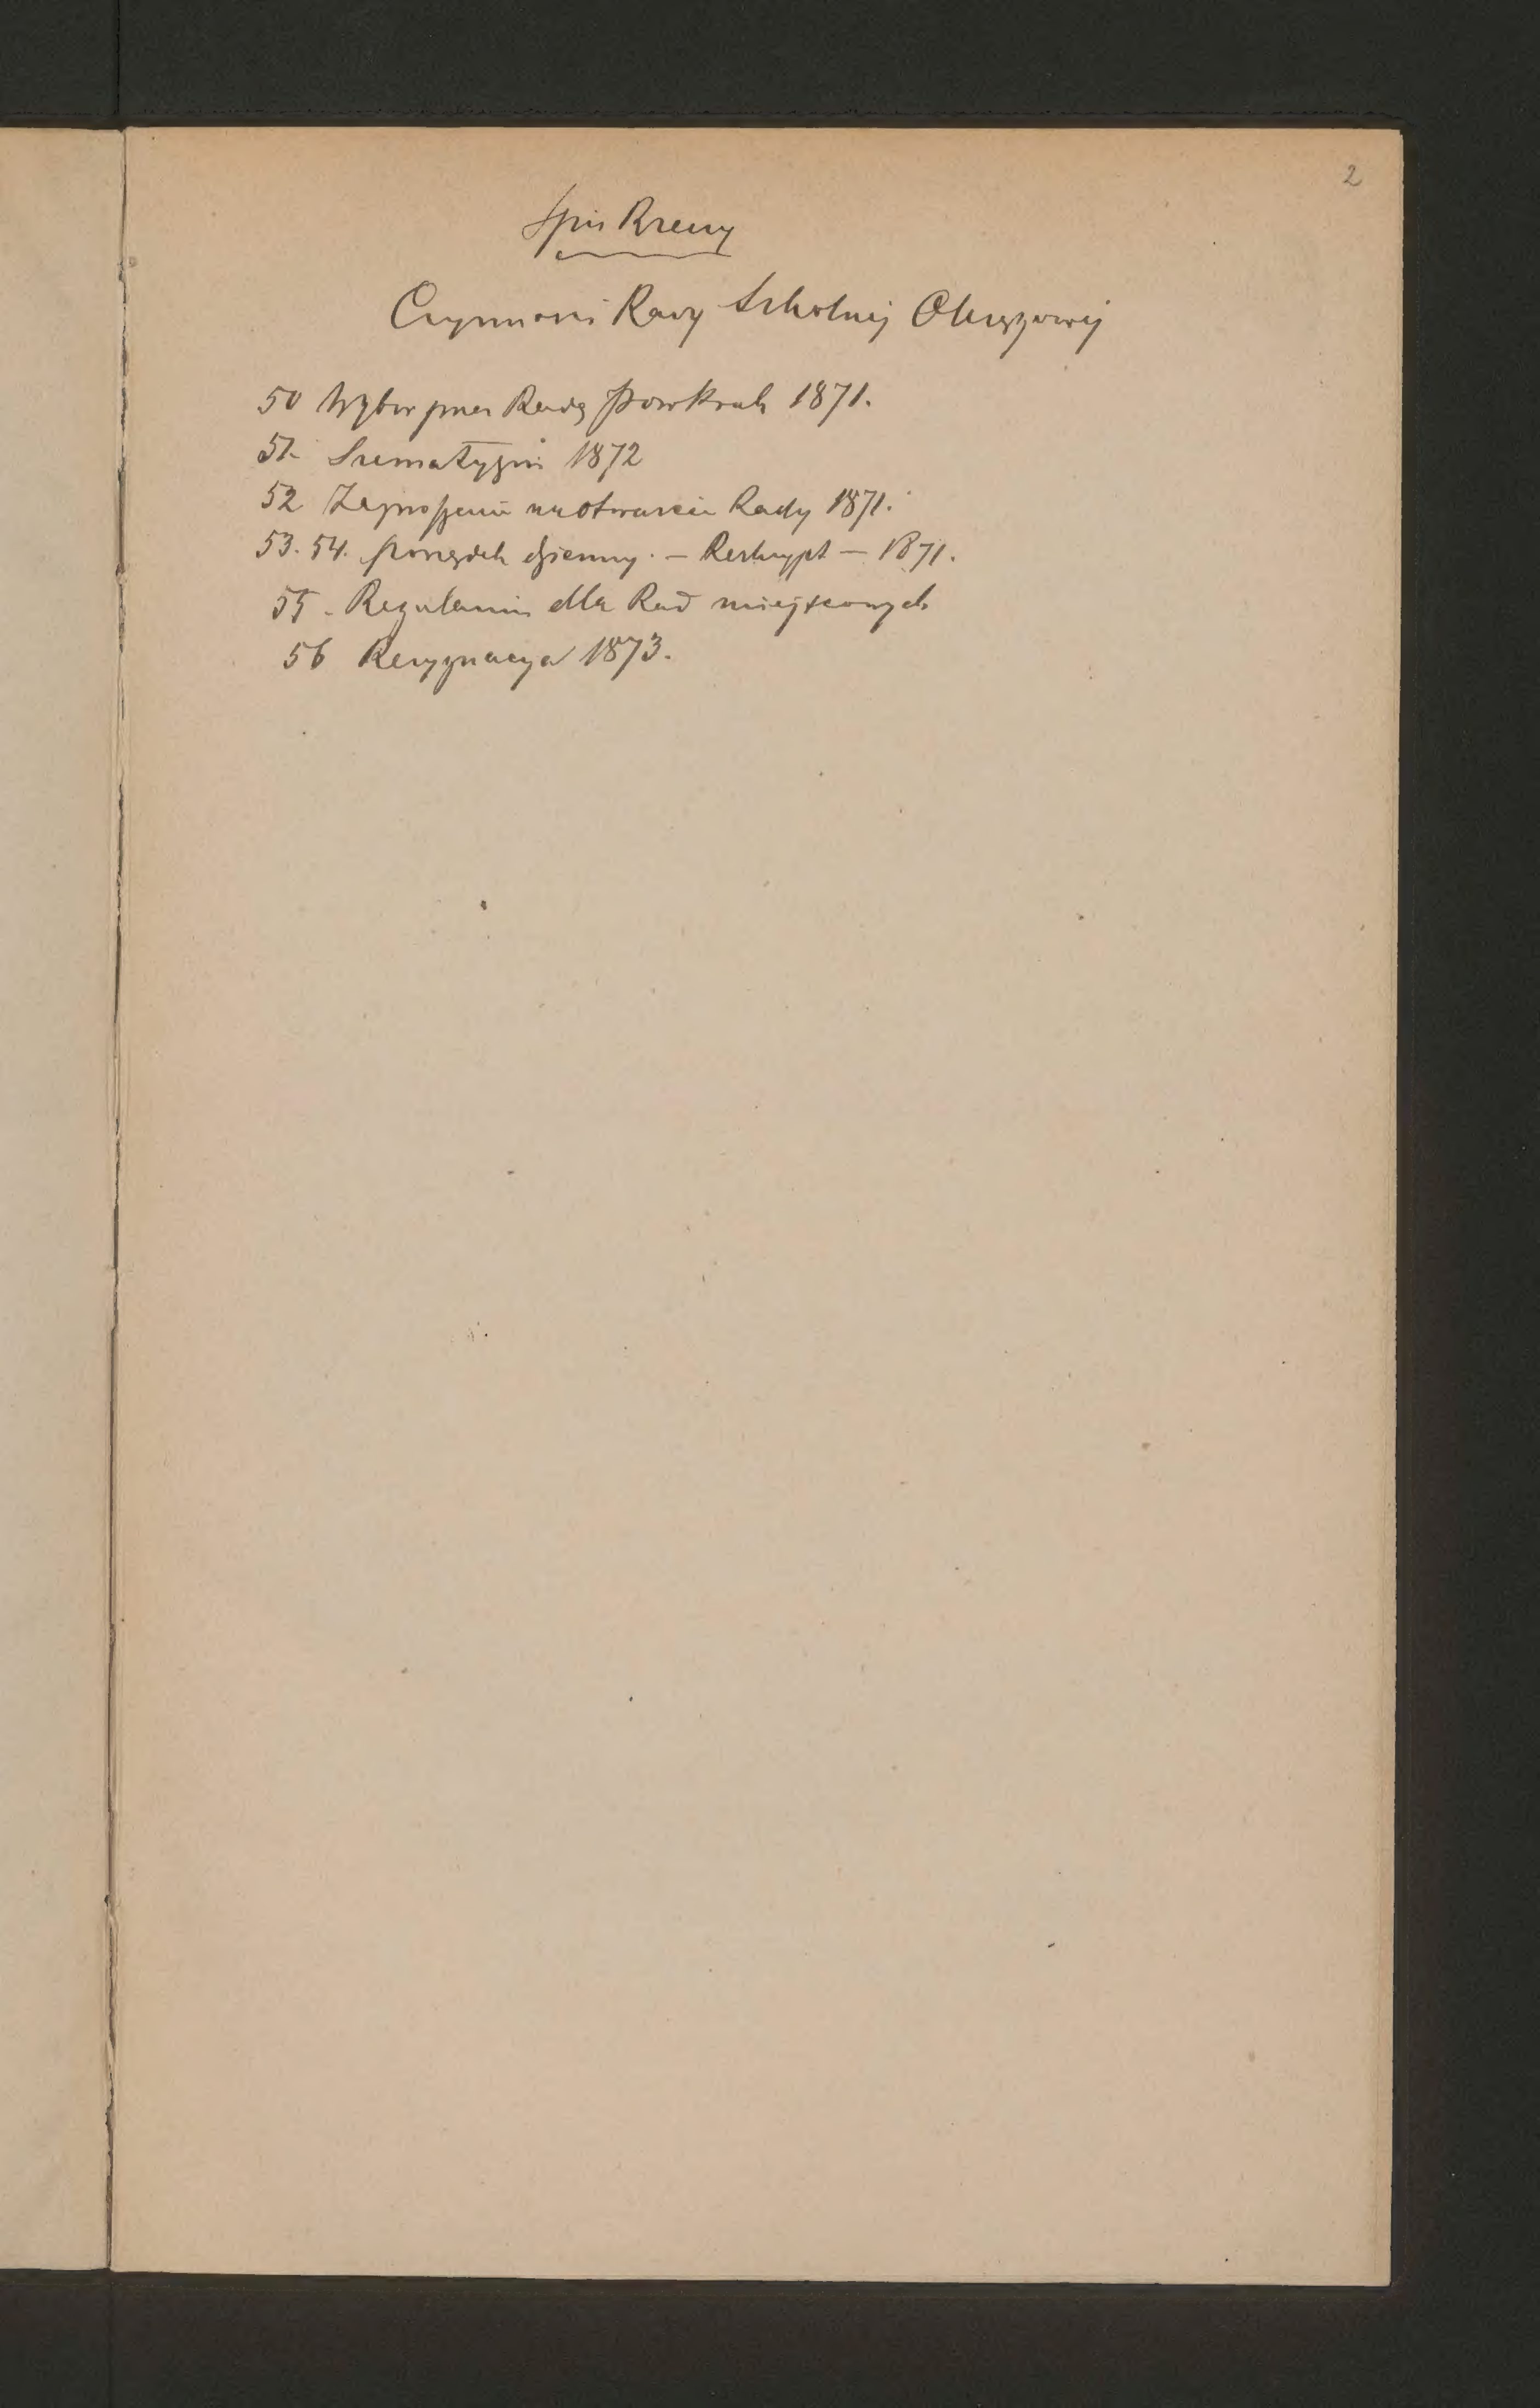 2
Spis Rzeczy
Czynności Rady Szkolnej Okręgowej
50 Wybór przez Radę pow Krak 1871.
51. Szematyzm 1872
52 Zaproszenie na otwarcie Rady 1871.
53. 54. porządek dzienny. — Reskrypt — 1871.
55. Regulamin dla Rad miejscowych
56 Rezygnacya 1873.